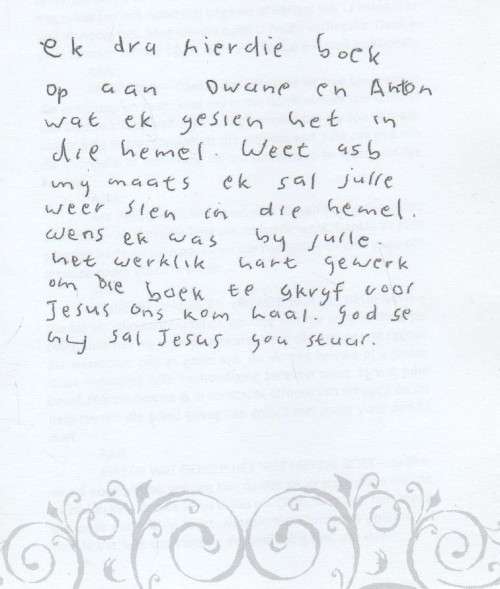 ek dra hierdie boek
op aan Dwane en Anton
wat ek gesien het in
die hemel. Weet asb
my maats ek sal julle
weer sien in die hemel.
wens ek was by julle.
het werklik hart gewerk
om die boek te skryf voor
Jesus ons kom haal. God se
hy sal Jesus gou stuur.